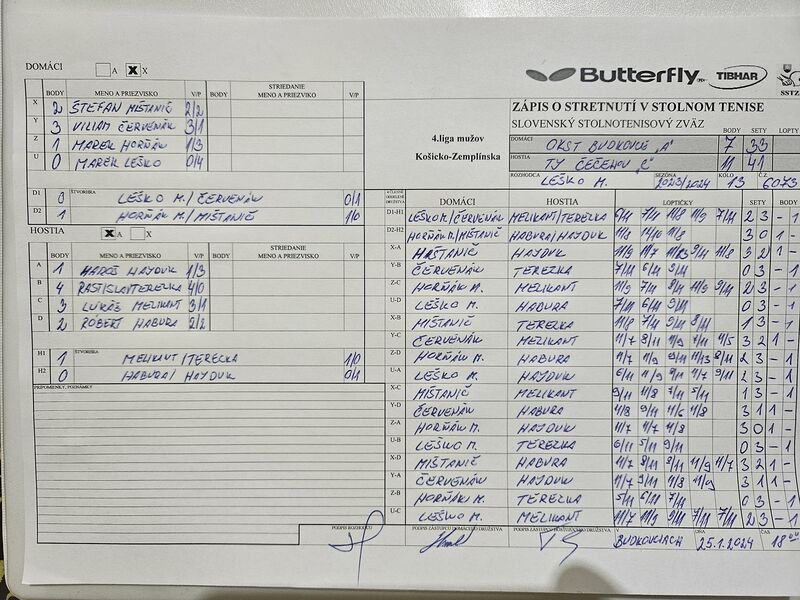 DOMÁCI A X X
Butterfly TIBHAR SSTZ
BODY MENO A PRIEZVISKO V/P BODY STRIEDANIE MENO A PRIEZVISKO V/P
X 2 ŠTEFAN MIŠTANIČ 2/2
Y 3 VILIAM ČERVENÁK 3/1
Z 1 MAREK HORŇÁK 1/3
U 0 MAREK LEŠKO 0/4
D1 0 ŠTVORHRA LEŠKO M./ČERVENÁK 0/1
D2 1 HORŇÁK M./MIŠTANIČ 1/0
HOSTIA X A X
BODY MENO A PRIEZVISKO V/P BODY STRIEDANIE MENO A PRIEZVISKO V/P
A 1 HAYDUK 1/3
B 4 RASTISLAV TEREZKA 4/0
C 3 LUKÁŠ MELIKANT 3/1
D 2 RÓBERT HABURA 2/2
H1 1 ŠTVORHRA MELIKANT/TERECKA 1/0
H2 0 HABURA/HAYDUK 0/1
PRIPOMIENKY, POZNÁMKY
4.liga mužov
Košicko-Zemplínska
ZÁPIS O STRETNUTÍ V STOLNOM TENISE
SLOVENSKÝ STOLNOTENISOVÝ ZVÄZ BODY SETY LOPTY
DOMÁCI OKST BUDKOVCE "A" 7 33
HOSTIA TJ ČEČEHOV "C" 11 41
ROZHODCA LEŠKO M. SEZÓNA 2023/2024 KOLO 13 Č.Z. 6073
DOMÁCI HOSTIA LOPTIČKY SETY BODY
D1-H1 LEŠKO M./ČERVENÁK MELIKANT/TEREZKA 6/11 7/11 11/8 11/9 7/11 2 3 - 1
D2-H2 HORŇÁK M./MIŠTANIČ HABURA/HAYDUK 11/8 14/10 11/8 3 0 1 -
X-A MIŠTANIČ HAYDUK 11/9 11/7 9/11 11/8 3 2 1 -
Y-B ČERVENÁK TEREZKA 7/11 6/11 9/11 0 3 - 1
Z-C HORŇÁK M. MELIKANT 11/9 7/11 8/11 11/9 9/11 2 3 - 1
U-D LEŠKO M. HABURA 7/11 6/11 9/11 0 3 - 1
X-B MIŠTANIČ TEREZKA 11/8 7/11 9/11 8/11 1 3 - 1
Y-C ČERVENÁK MELIKANT 11/7 8/11 11/9 7/11 3 2 1 -
Z-D HORŇÁK M. HABURA 11/7 7/11 11/9 11/13 8/11 2 3 - 1
U-A LEŠKO M. HAYDUK 6/11 11/9 9/11 11/7 9/11 2 3 - 1
X-C MIŠTANIČ MELIKANT 9/11 11/8 7/11 5/11 1 3 - 1
Y-D ČERVENÁK HABURA 11/8 9/11 11/6 11/8 3 1 1 -
Z-A HORŇÁK M. HAYDUK 11/7 11/7 11/8 3 0 1 -
U-B LEŠKO M. TEREZKA 6/11 5/11 9/11 0 3 - 1
X-D MIŠTANIČ HABURA 11/7 8/11 8/11 11/9 11/7 3 2 1 -
Y-A ČERVENÁK HAYDUK 11/7 9/11 11/8 11/9 3 1 1 -
Z-B HORŇÁK M. TEREZKA 5/11 6/11 7/11 0 3 - 1
U-C LEŠKO M. MELIKANT 11/7 11/9 9/11 7/11 7/11 2 3 - 1
PODPIS ROZHODCU PODPIS ZÁSTUPCU DOMÁCEHO DRUŽSTVA PODPIS ZÁSTUPCU HOSŤUJÚCEHO DRUŽSTVA V BUDKOVCIACH DŇA 25.1.2024 ČAS 18